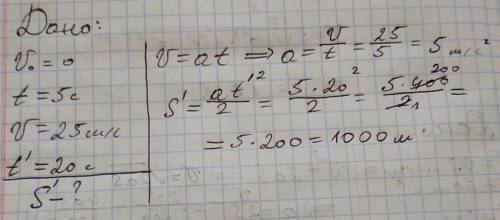 Дано:
V₀ = 0
t = 5c
V = 25 м/с
t' = 20 c
S' - ?
V = at ⟹ a = V/t = 25/5 = 5 м/с²
S' = at'²/2 = 5·20²/2 = 5·400/2 200 1 =
= 5·200 = 1000 м.